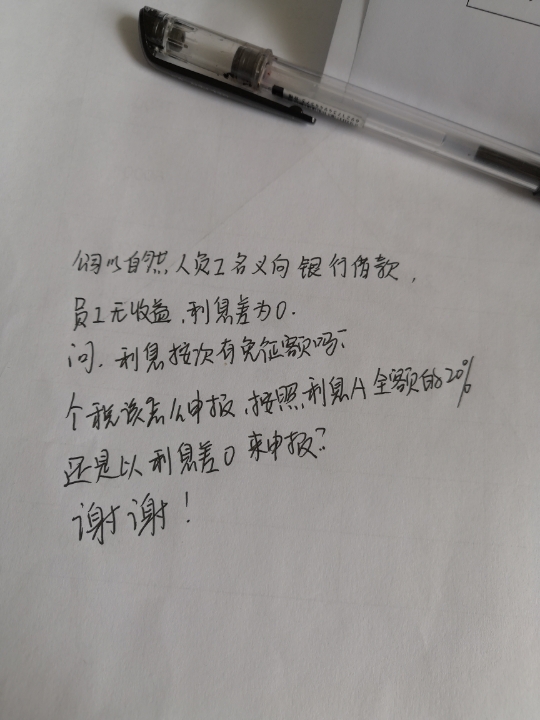 公司以自然人员工名义向银行借款，
员工无收益，利息差为0.
问，利息按次有免征额吗？
个税该怎么申报，按照利息A全额的20%
还是以利息差0来申报？
谢谢！